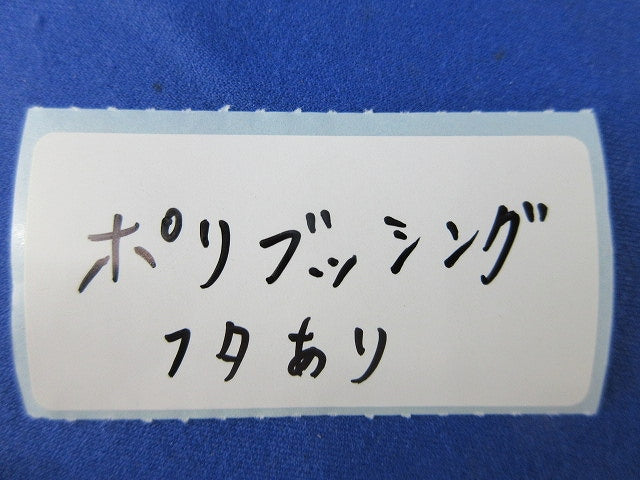 ポリブッシング
フタあり